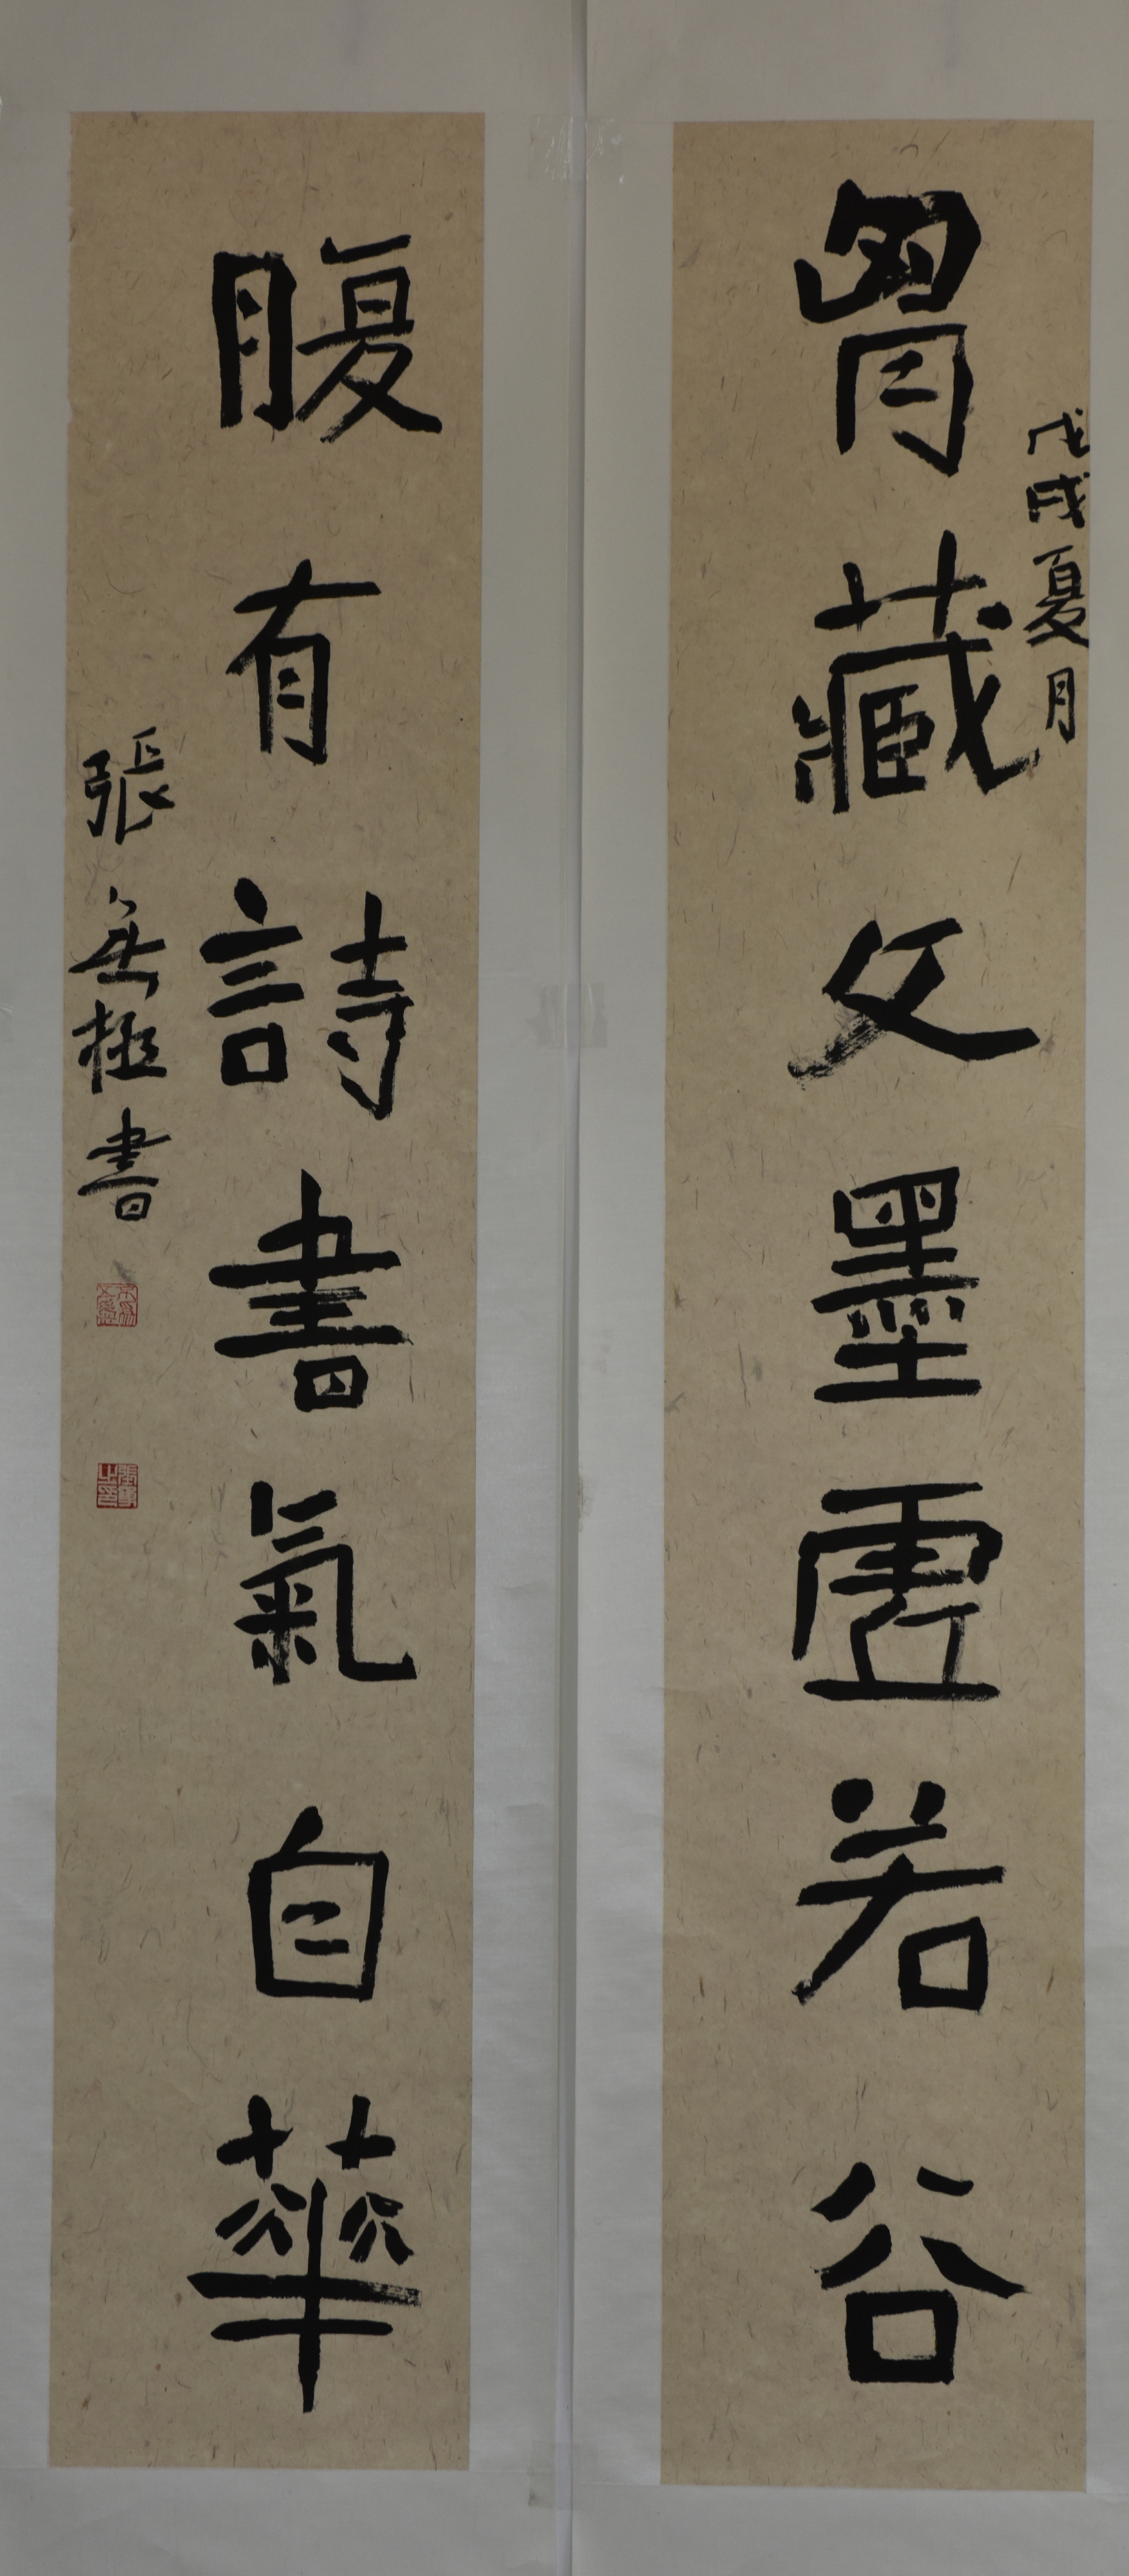 戊戌夏月
胷藏文墨虛若谷
腹有詩書氣自華
張無極書